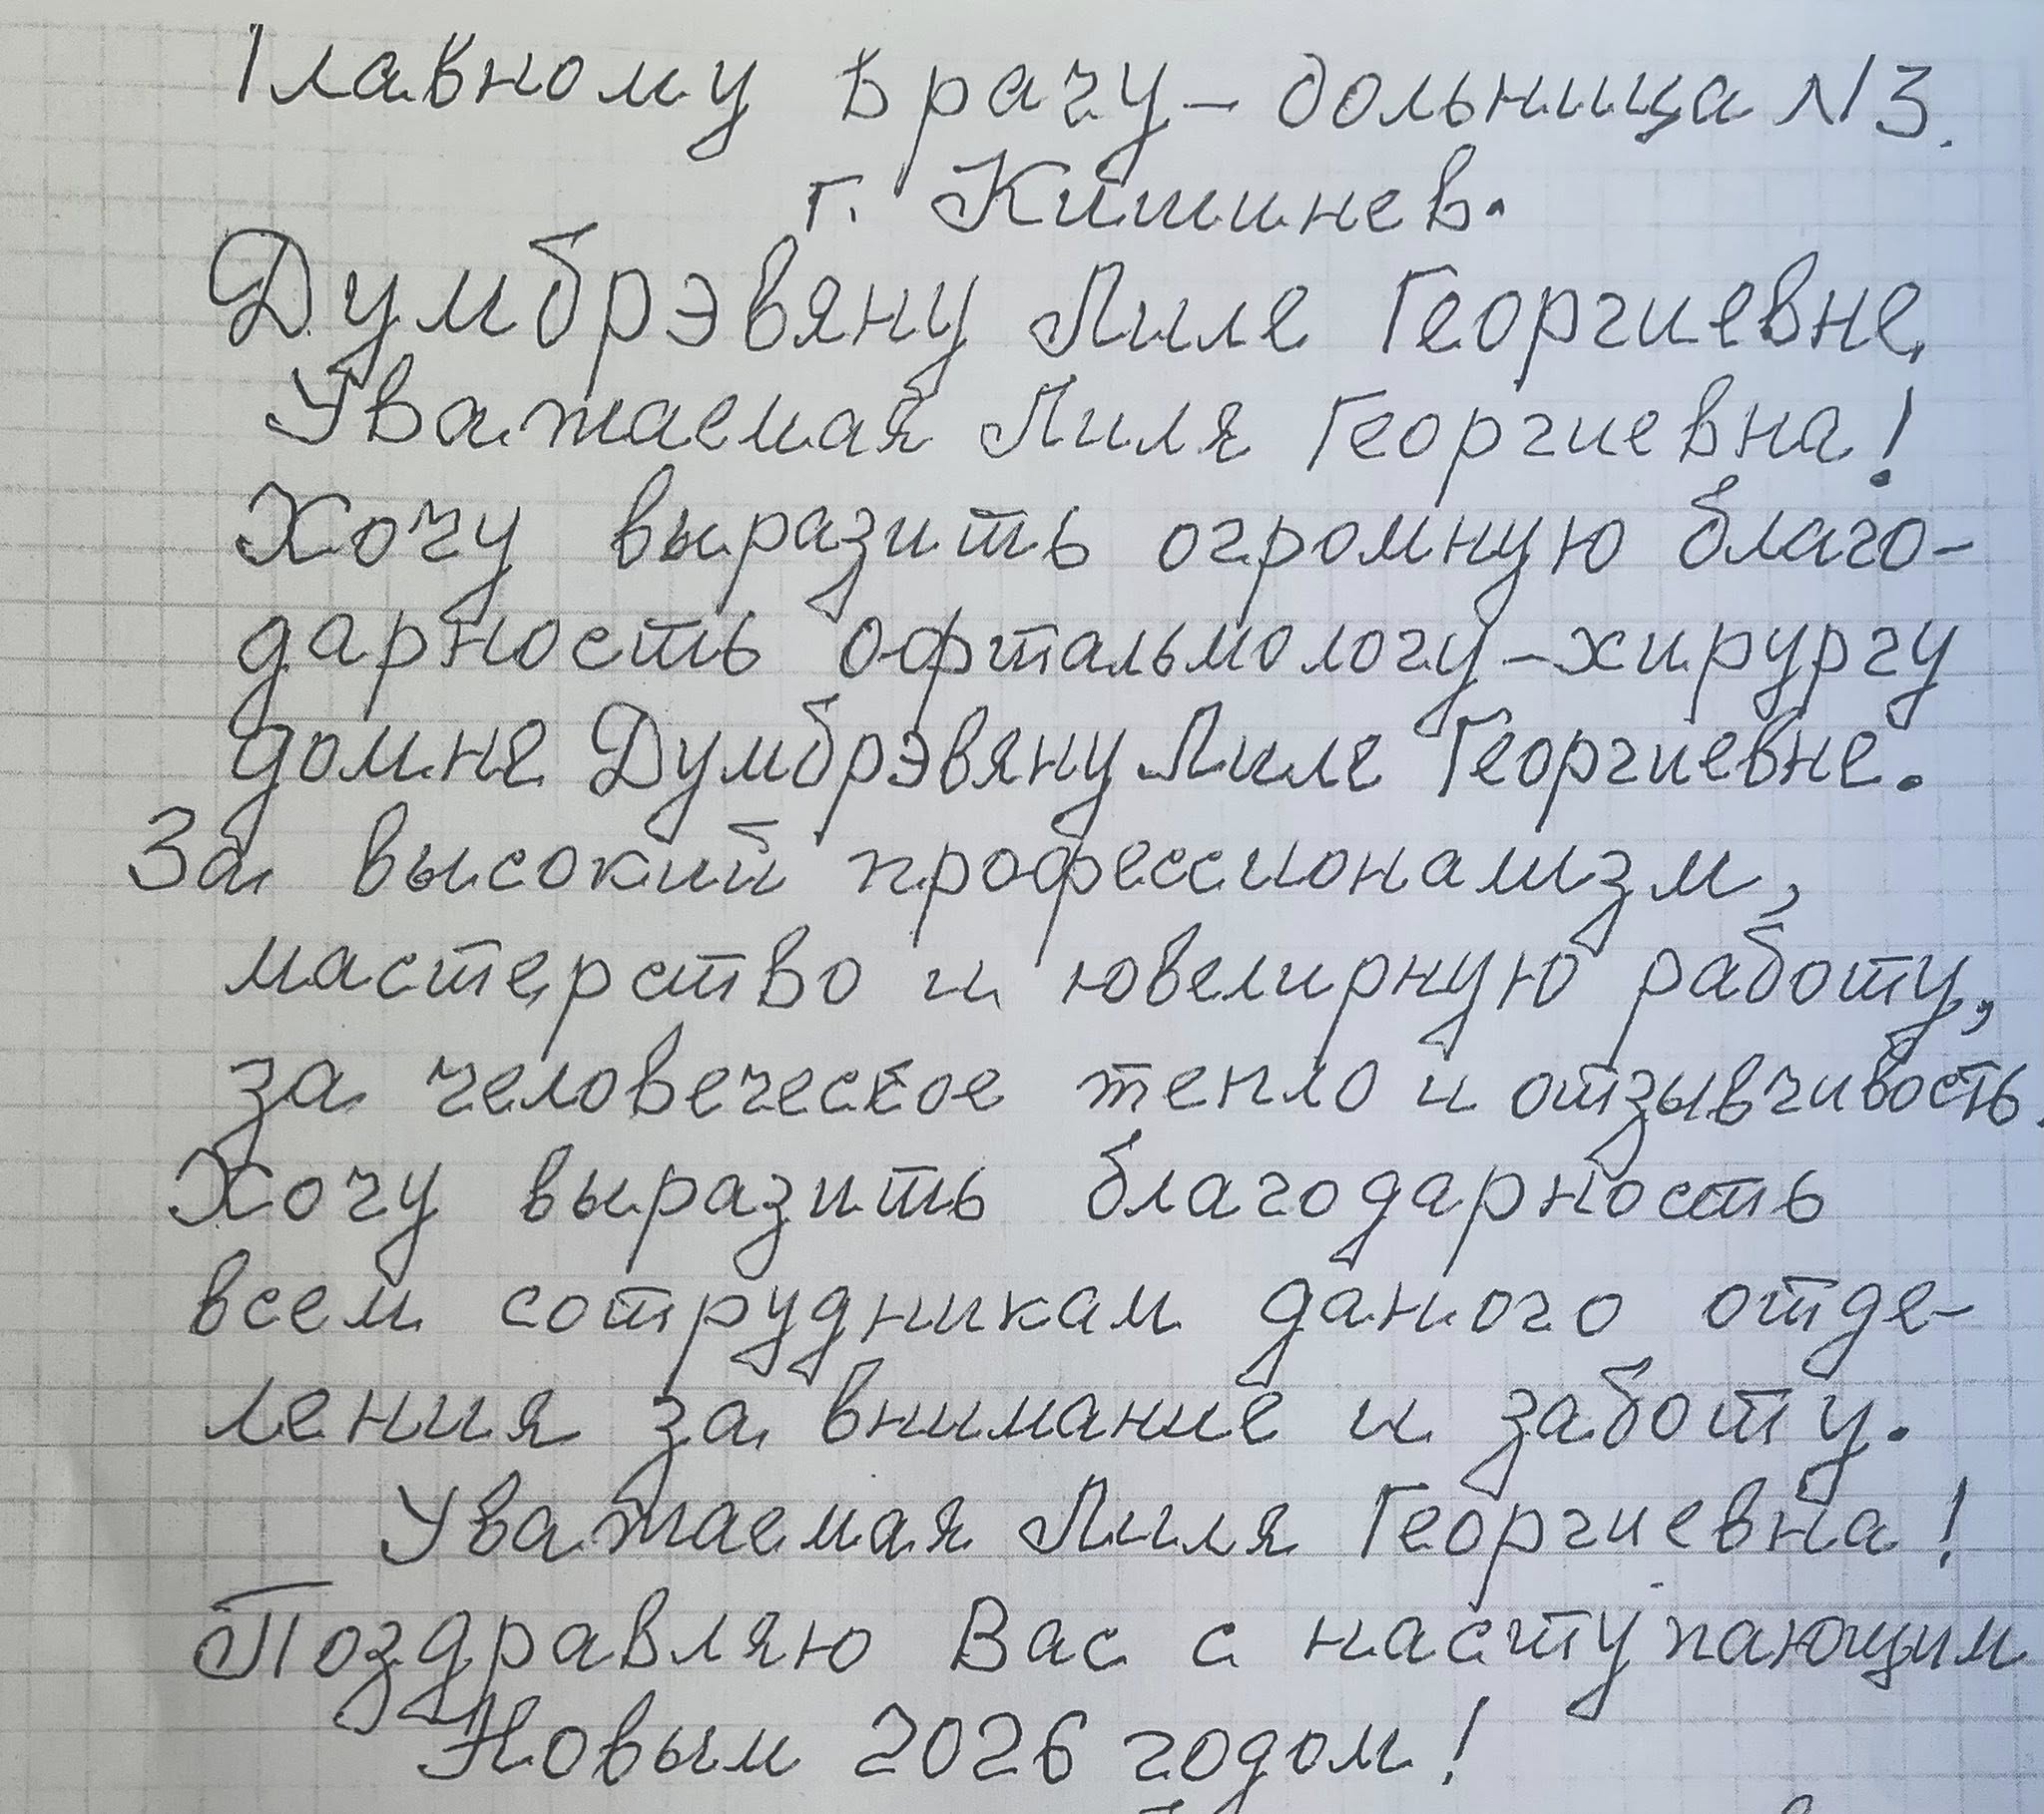 Главному врачу - больница N 3.
г. Кишинев.
Думбрэвяну Лиле Георгиевне
Уважаемая Лиля Георгиевна!
Хочу выразить огромную благо-
дарность офтальмологу-хирургу
домне Думбрэвяну Лиле Георгиевне.
За высокий профессионализм,
мастерство и ювелирную работу,
за человеческое тепло и отзывчивость.
Хочу выразить благодарность
всем сотрудникам даного отде-
ления за внимание и заботу.
Уважаемая Лиля Георгиевна!
Поздравляю Вас с наступающим
Новым 2026 годом!